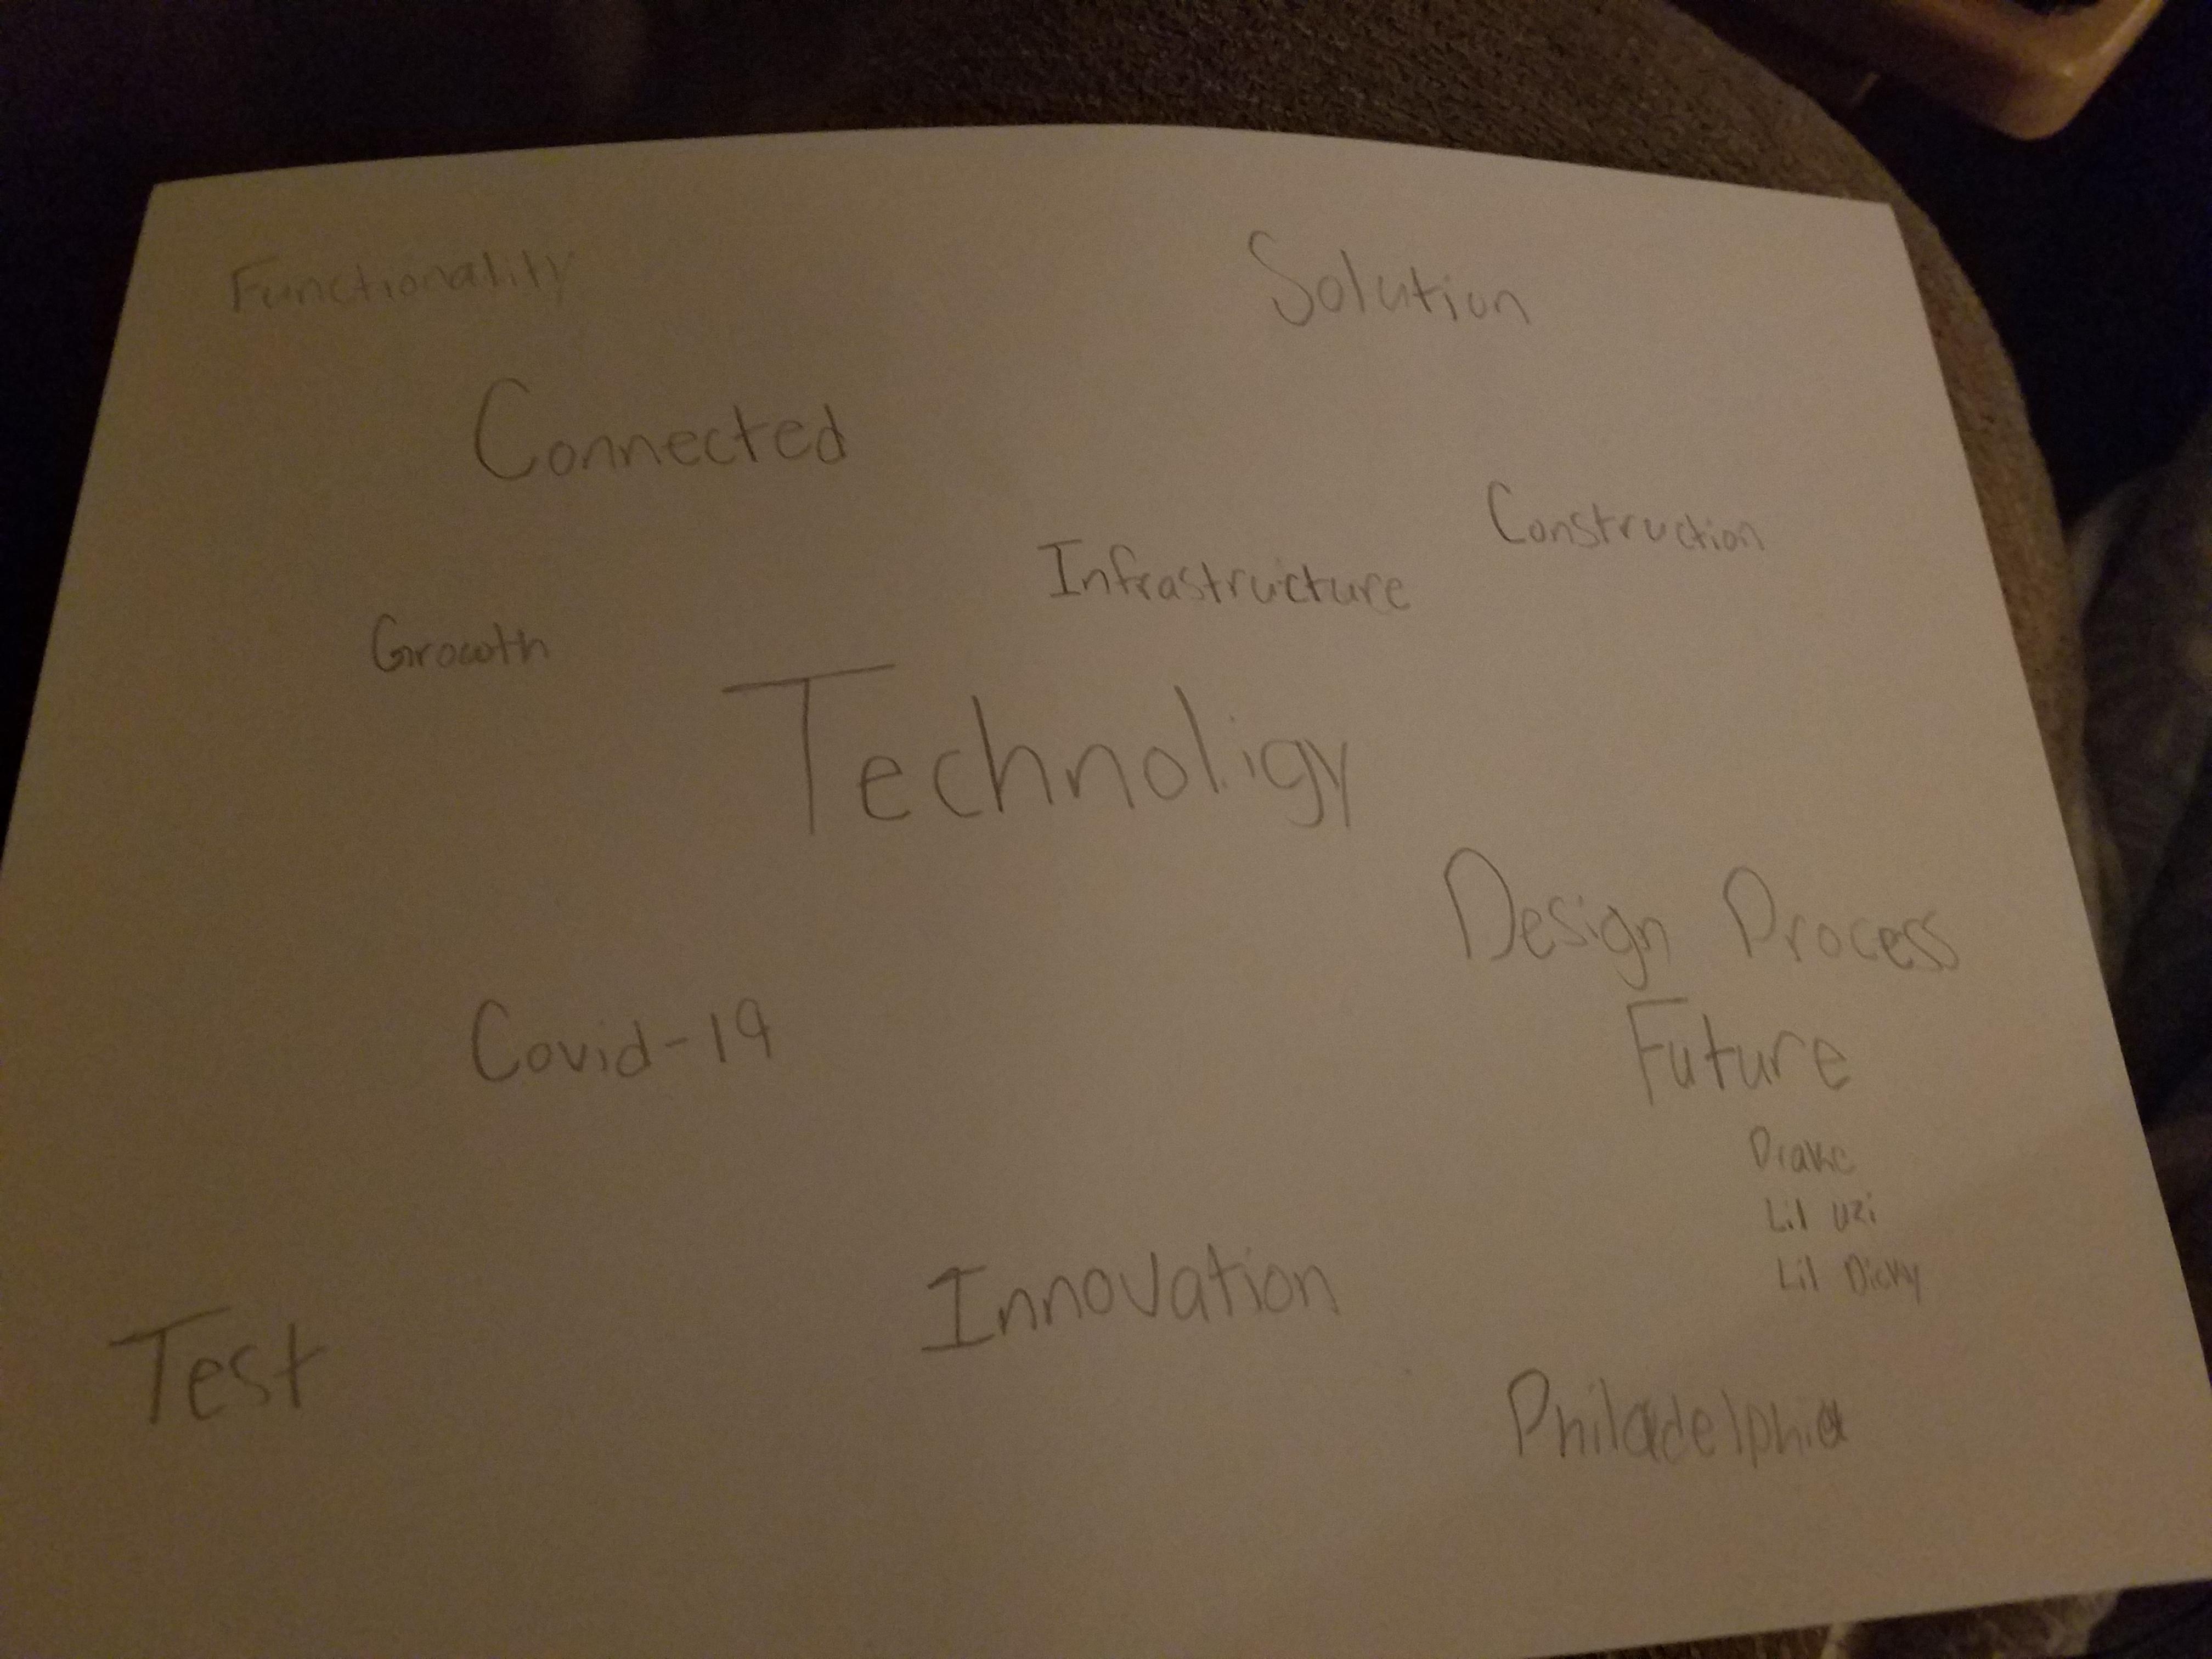 Functionality
Solution
Connected
Construction
Infrastructure
Growth
Technoligy
Design Process
Covid-19
Future
Drake
Lil Uzi
Lil Dicky
Innovation
Test
Philadelphia